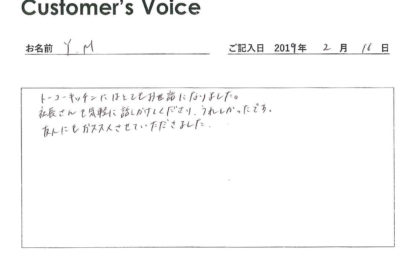 Customer's Voice
お名前 Y.M ご記入日 2019年 2月 16日
トーコーキッチンにはとてもお世話になりました。
社長さんも気軽に話しかけてくださり、うれしかったです。
友人にもおススメさせていただきました。